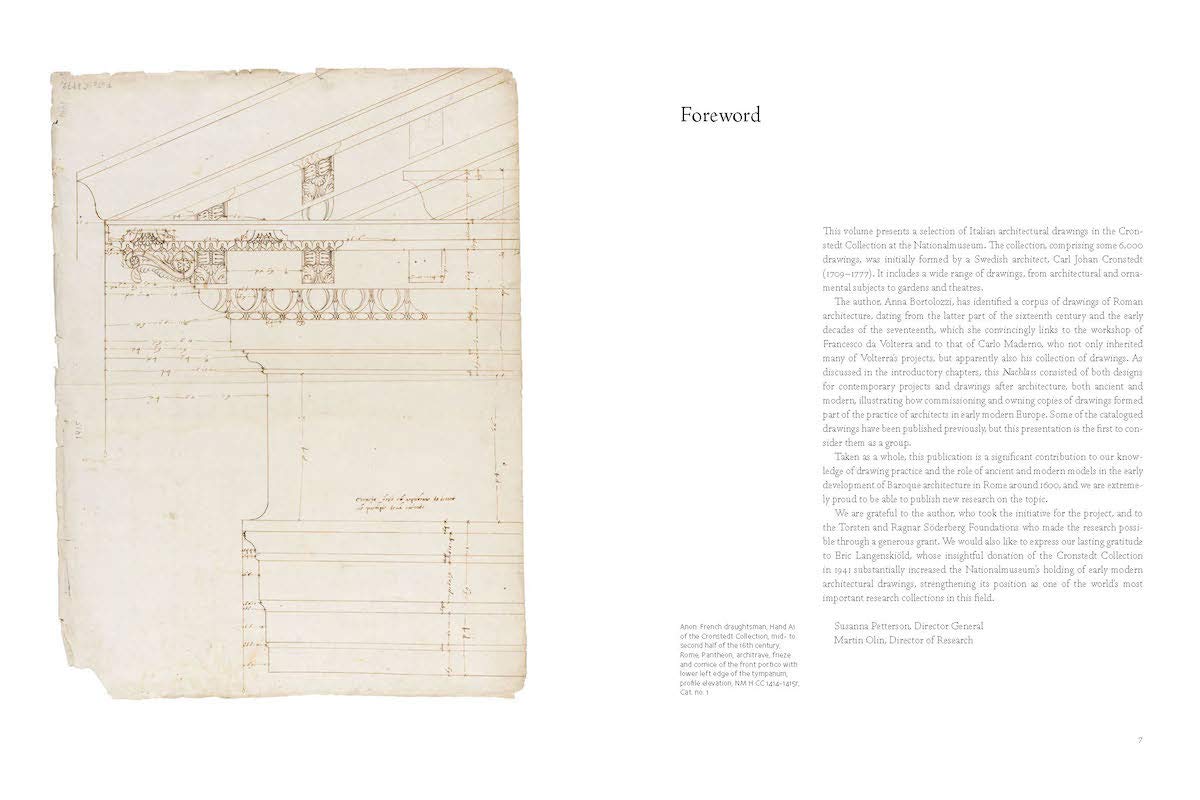 Foreword
This volume presents a selection of Italian architectural drawings in the Cron-
stedt Collection at the Nationalmuseum. The collection, comprising some 6,000
drawings, was initially formed by a Swedish architect, Carl Johan Cronstedt
(1709–1777). It includes a wide range of drawings, from architectural and orna-
mental subjects to gardens and theatres.
The author, Anna Bortolozzi, has identified a corpus of drawings of Roman
architecture, dating from the latter part of the sixteenth century and the early
decades of the seventeenth, which she convincingly links to the workshop of
Francesco da Volterra and to that of Carlo Maderno, who not only inherited
many of Volterra's projects, but apparently also his collection of drawings. As
discussed in the introductory chapters, this Nachlass consisted of both designs
for contemporary projects and drawings after architecture, both ancient and
modern, illustrating how commissioning and owning copies of drawings formed
part of the practice of architects in early modern Europe. Some of the catalogued
drawings have been published previously, but this presentation is the first to con-
sider them as a group.
Taken as a whole, this publication is a significant contribution to our know-
ledge of drawing practice and the role of ancient and modern models in the early
development of Baroque architecture in Rome around 1600, and we are extreme-
ly proud to be able to publish new research on the topic.
We are grateful to the author, who took the initiative for the project, and to
the Torsten and Ragnar Söderberg Foundations who made the research possi-
ble through a generous grant. We would also like to express our lasting gratitude
to Eric Langenskiöld, whose insightful donation of the Cronstedt Collection
in 1941 substantially increased the Nationalmuseum's holding of early modern
architectural drawings, strengthening its position as one of the world's most
important research collections in this field.
Susanna Petterson, Director General
Martin Olin, Director of Research
Anon. French draughtsman, Hand A1
of the Cronstedt Collection, mid- to
second half of the 16th century,
Rome, Pantheon, architrave, frieze
and cornice of the front portico with
lower left edge of the tympanum,
profile elevation, NM H CC 1414–1415r,
Cat. no. 1
7
1415